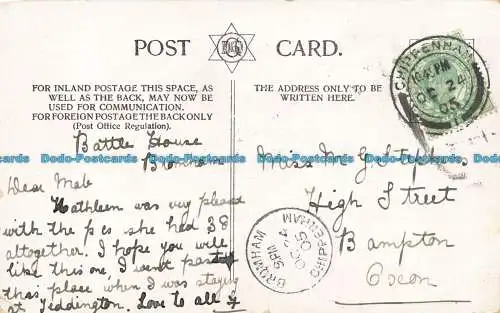 POST CARD.
FOR INLAND POSTAGE THIS SPACE, AS
WELL AS THE BACK, MAY NOW BE
USED FOR COMMUNICATION.
FOR FOREIGN POSTAGE THE BACK ONLY
(Post Office Regulation).
THE ADDRESS ONLY TO BE
WRITTEN HERE.
CHIPPENHAM
PM
OC 24
05
Battle House
Bromham
Dear Mab
Kathleen was very pleased
with the p cs she had 38
altogether. I hope you will
like this one, I went past
this place when I was staying
at Teddington. Love to all
Miss M G
High Street
Bampton
Oxon
BROMHAM
9PM
OC 24
05
CHIPPENHAM
Dodo-Postcards Dodo-Postcards Dodo-Postcards Dodo-Postcards
Dodo-Postcards Dodo-Postcards Dodo-Postcards Dodo-Postcards